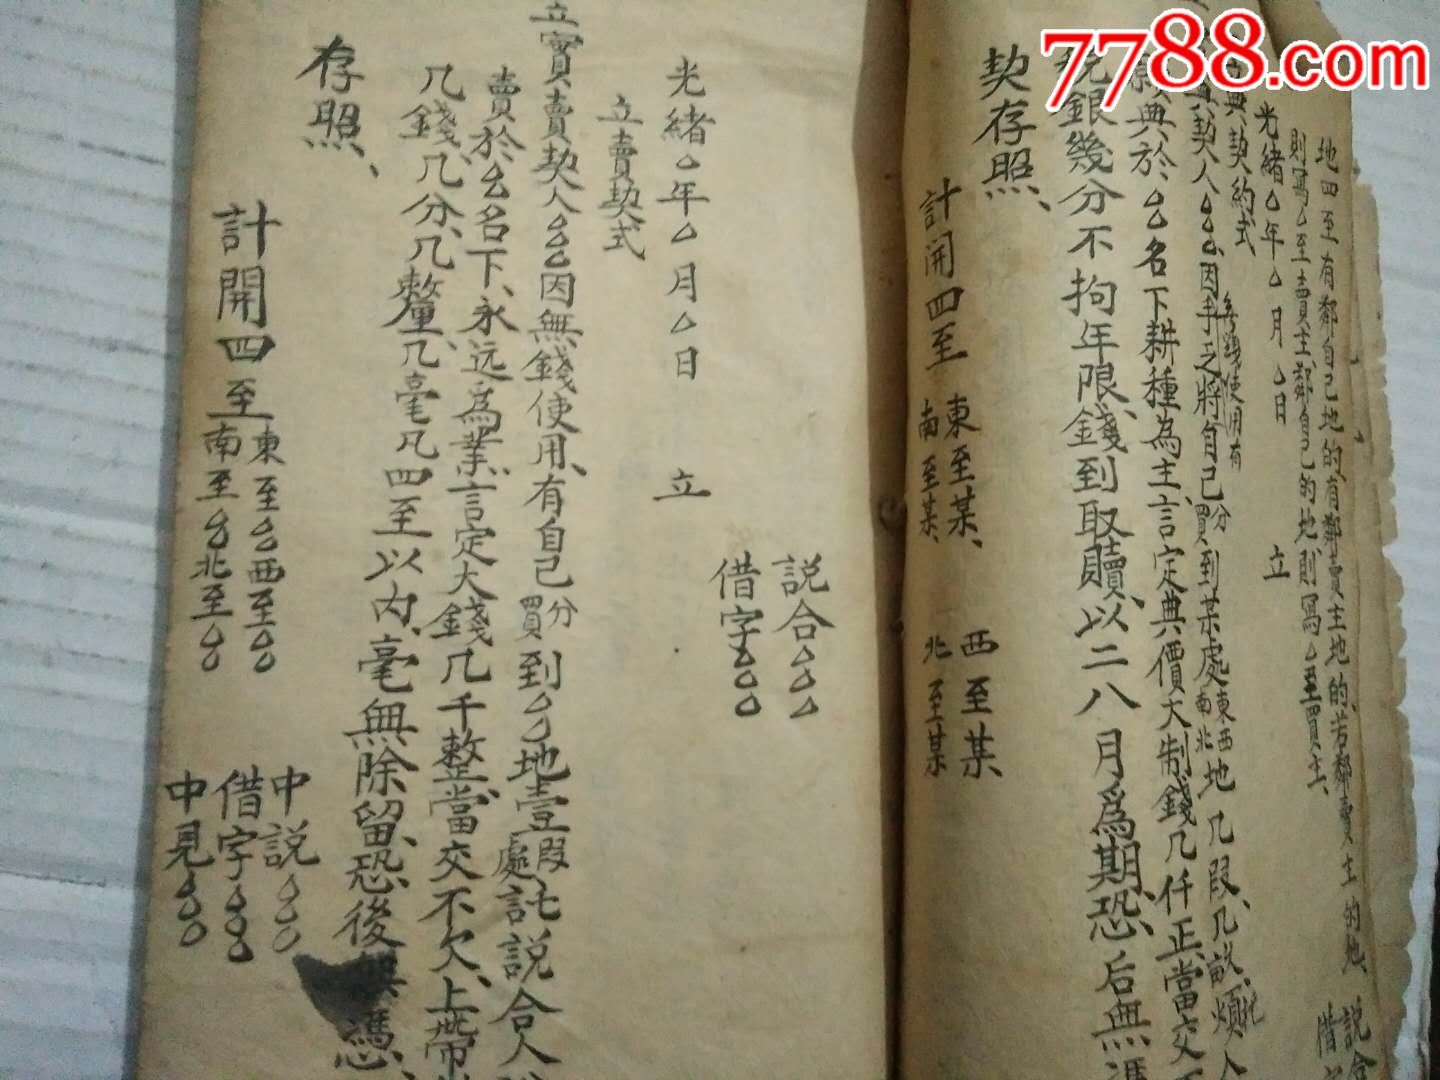 7788.com
地四至有鄰自己地的有鄰賣主地的若鄰賣主的地、
則寫厶至賣主、鄰自己的地則寫厶至買主、
說合
借
光緒厶年厶月厶日 立
典契約式
無錢使用有
契人厶厶厶因手乏將自己分買到某處東西南北地几段几畝煩人
典於厶厶名下耕種為主言定典價大制錢几仟正當交
銀幾分不拘年限錢到取贖、以二八月為期恐后無憑
契存照、
計開四至 東至某、 西至某、
南至某、 北至某
說合厶厶厶
借字厶厶厶
光緒厶年厶月厶日 立
立賣契式
立實賣契人厶厶厶因無錢使用、有自己分買到厶厶地壹段處託說合人
賣於厶厶名下、永远為業、言定大錢几千整、當交不欠、上帶
几錢、几分、几釐、几毫凡四至以內、毫無除留、恐後無憑、
存照、
計開四至 東至厶厶西至厶厶
南至厶厶北至厶厶
中説厶厶厶
借字厶厶厶
中見厶厶厶